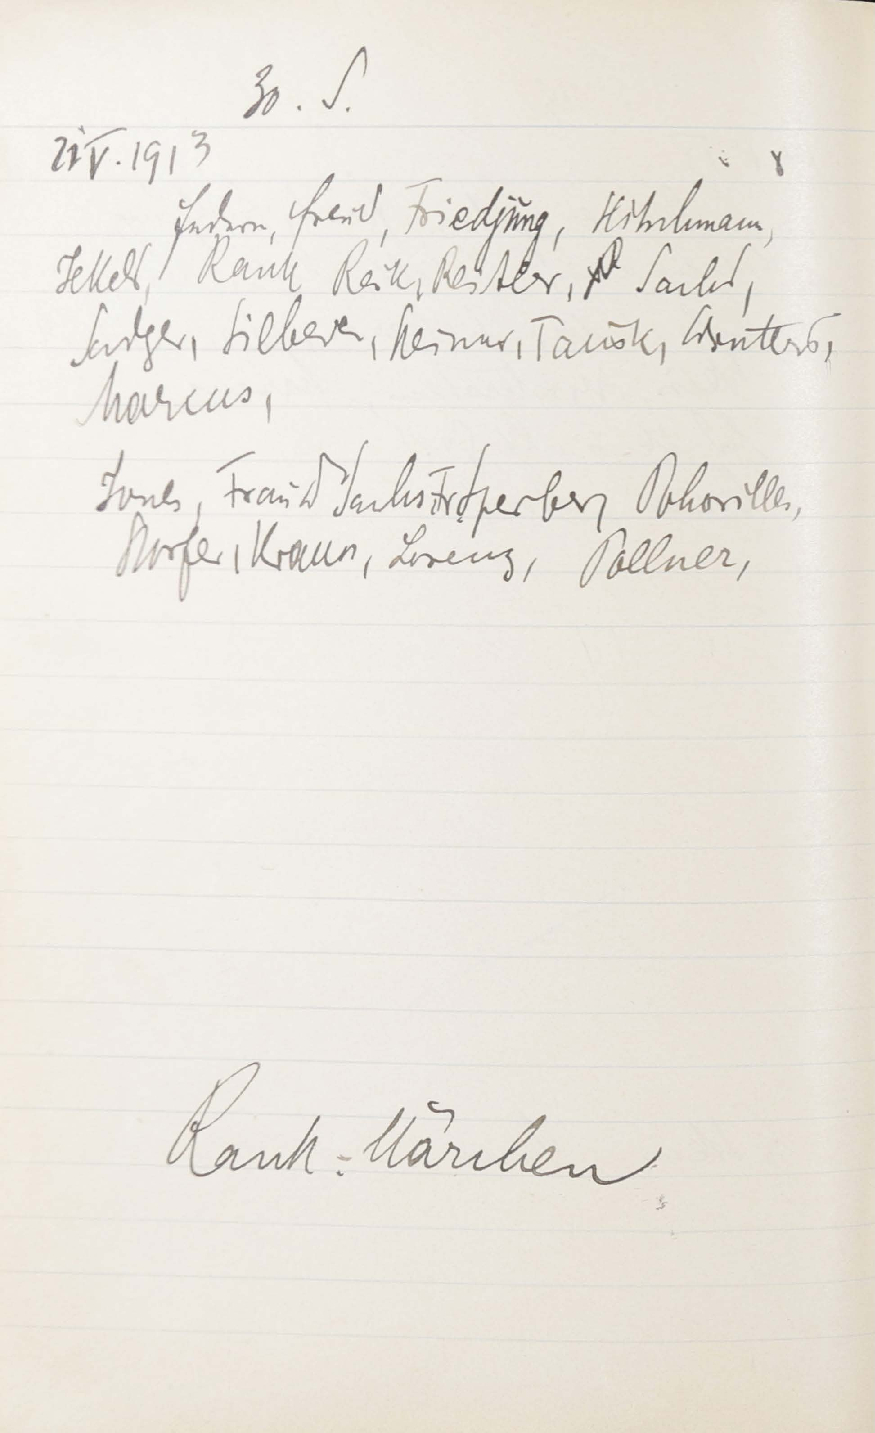 30. S.
21 V. 1913
Federn, Freud, Friedjung, Hitschmann,
Jekels, Rank Reik, Reitler, Sachs,
Sadger, Silberer, Steiner, Tausk, Winterst,
Marcus,
Jones, Frau D Sachs Fr. Sperber, Pohorilles,
Storfer, Kraus, Lorenz, Pollner,
Rank: Märchen